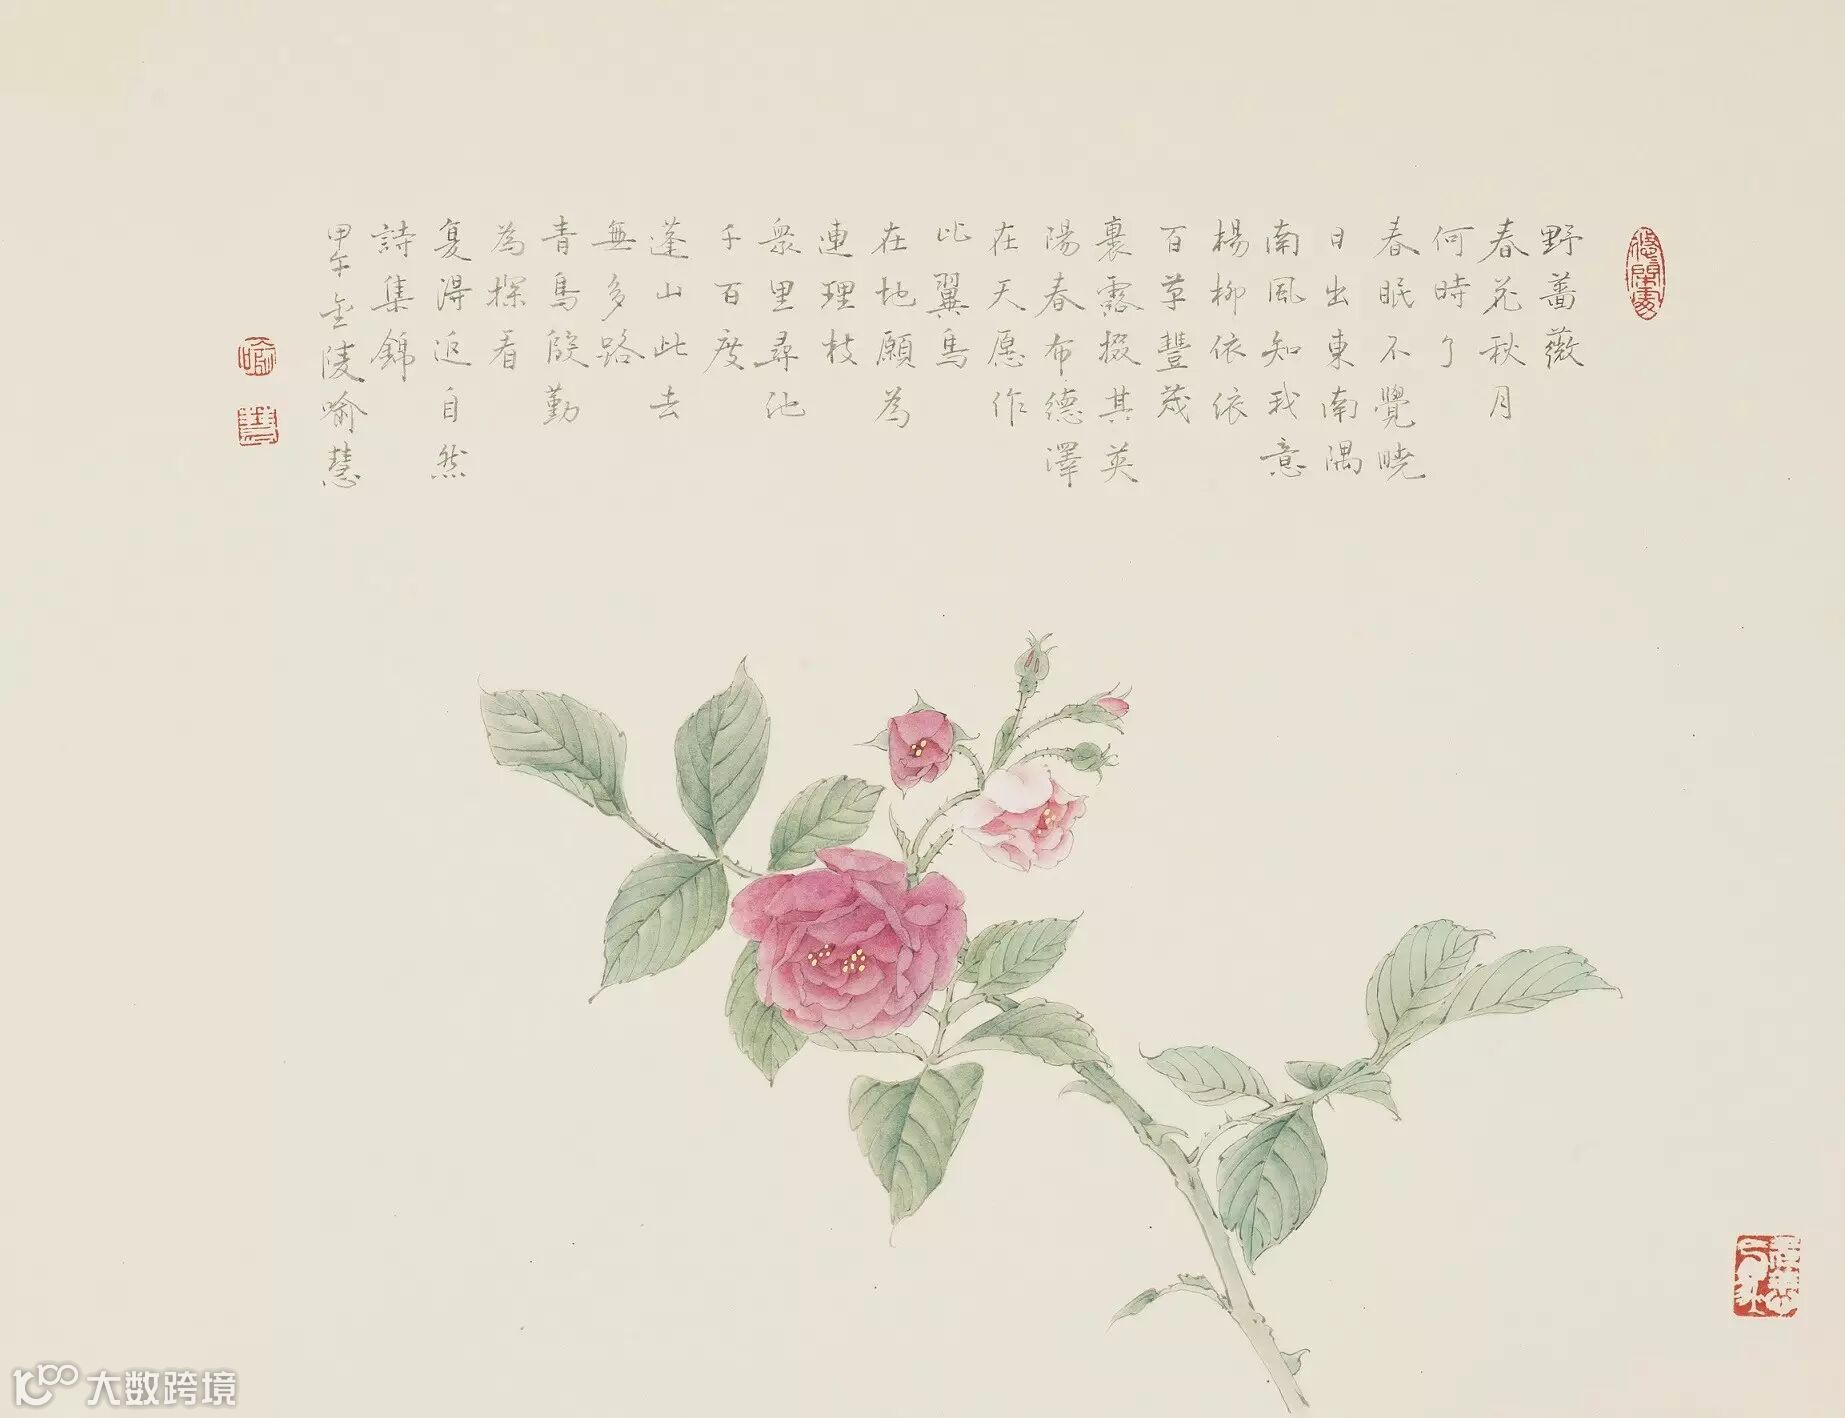 野薔薇
春花秋月
何時了
春眠不覺曉
日出東南隅
南風知我意
楊柳依依
百草豐茂
裛露掇其英
陽春布德澤
在天愿作
比翼鳥
在地願為
連理枝
衆里尋他
千百度
蓬山此去
無多路
青鳥殷勤
為探看
复得返自然
詩集錦
甲午金陵喻慧
喻
慧
大数跨境